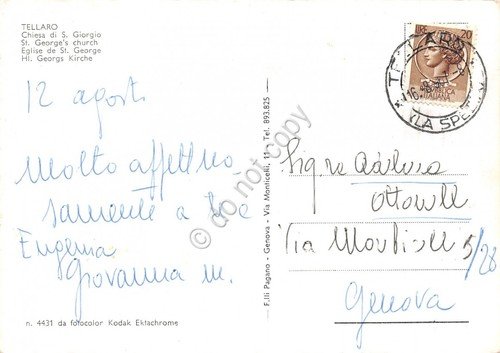 TELLARO
Chiesa di S. Giorgio
St. George's church
Eglise de St. George
Hl. Georgs Kirche
12 agosto
Molto affettuo-
samente a te e
Eugenia
Giovanna m.
n. 4431 da fotocolor Kodak Ektachrome
F.lli Pagano - Genova - Via Monticelli, 11 r - Tel. 893.825
© do not copy
LIRE 20
ITALIANA
TELLARO
(LA SPEZIA)
Sig.ne
Ottonelle
Via
5/28
Genova